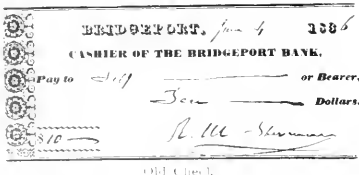 BRIDGEPORT, June 4 1836
CASHIER OF THE BRIDGEPORT BANK,
Pay to Self or Bearer,
Ten Dollars.
$10 R. M. Sherman
Old Check.